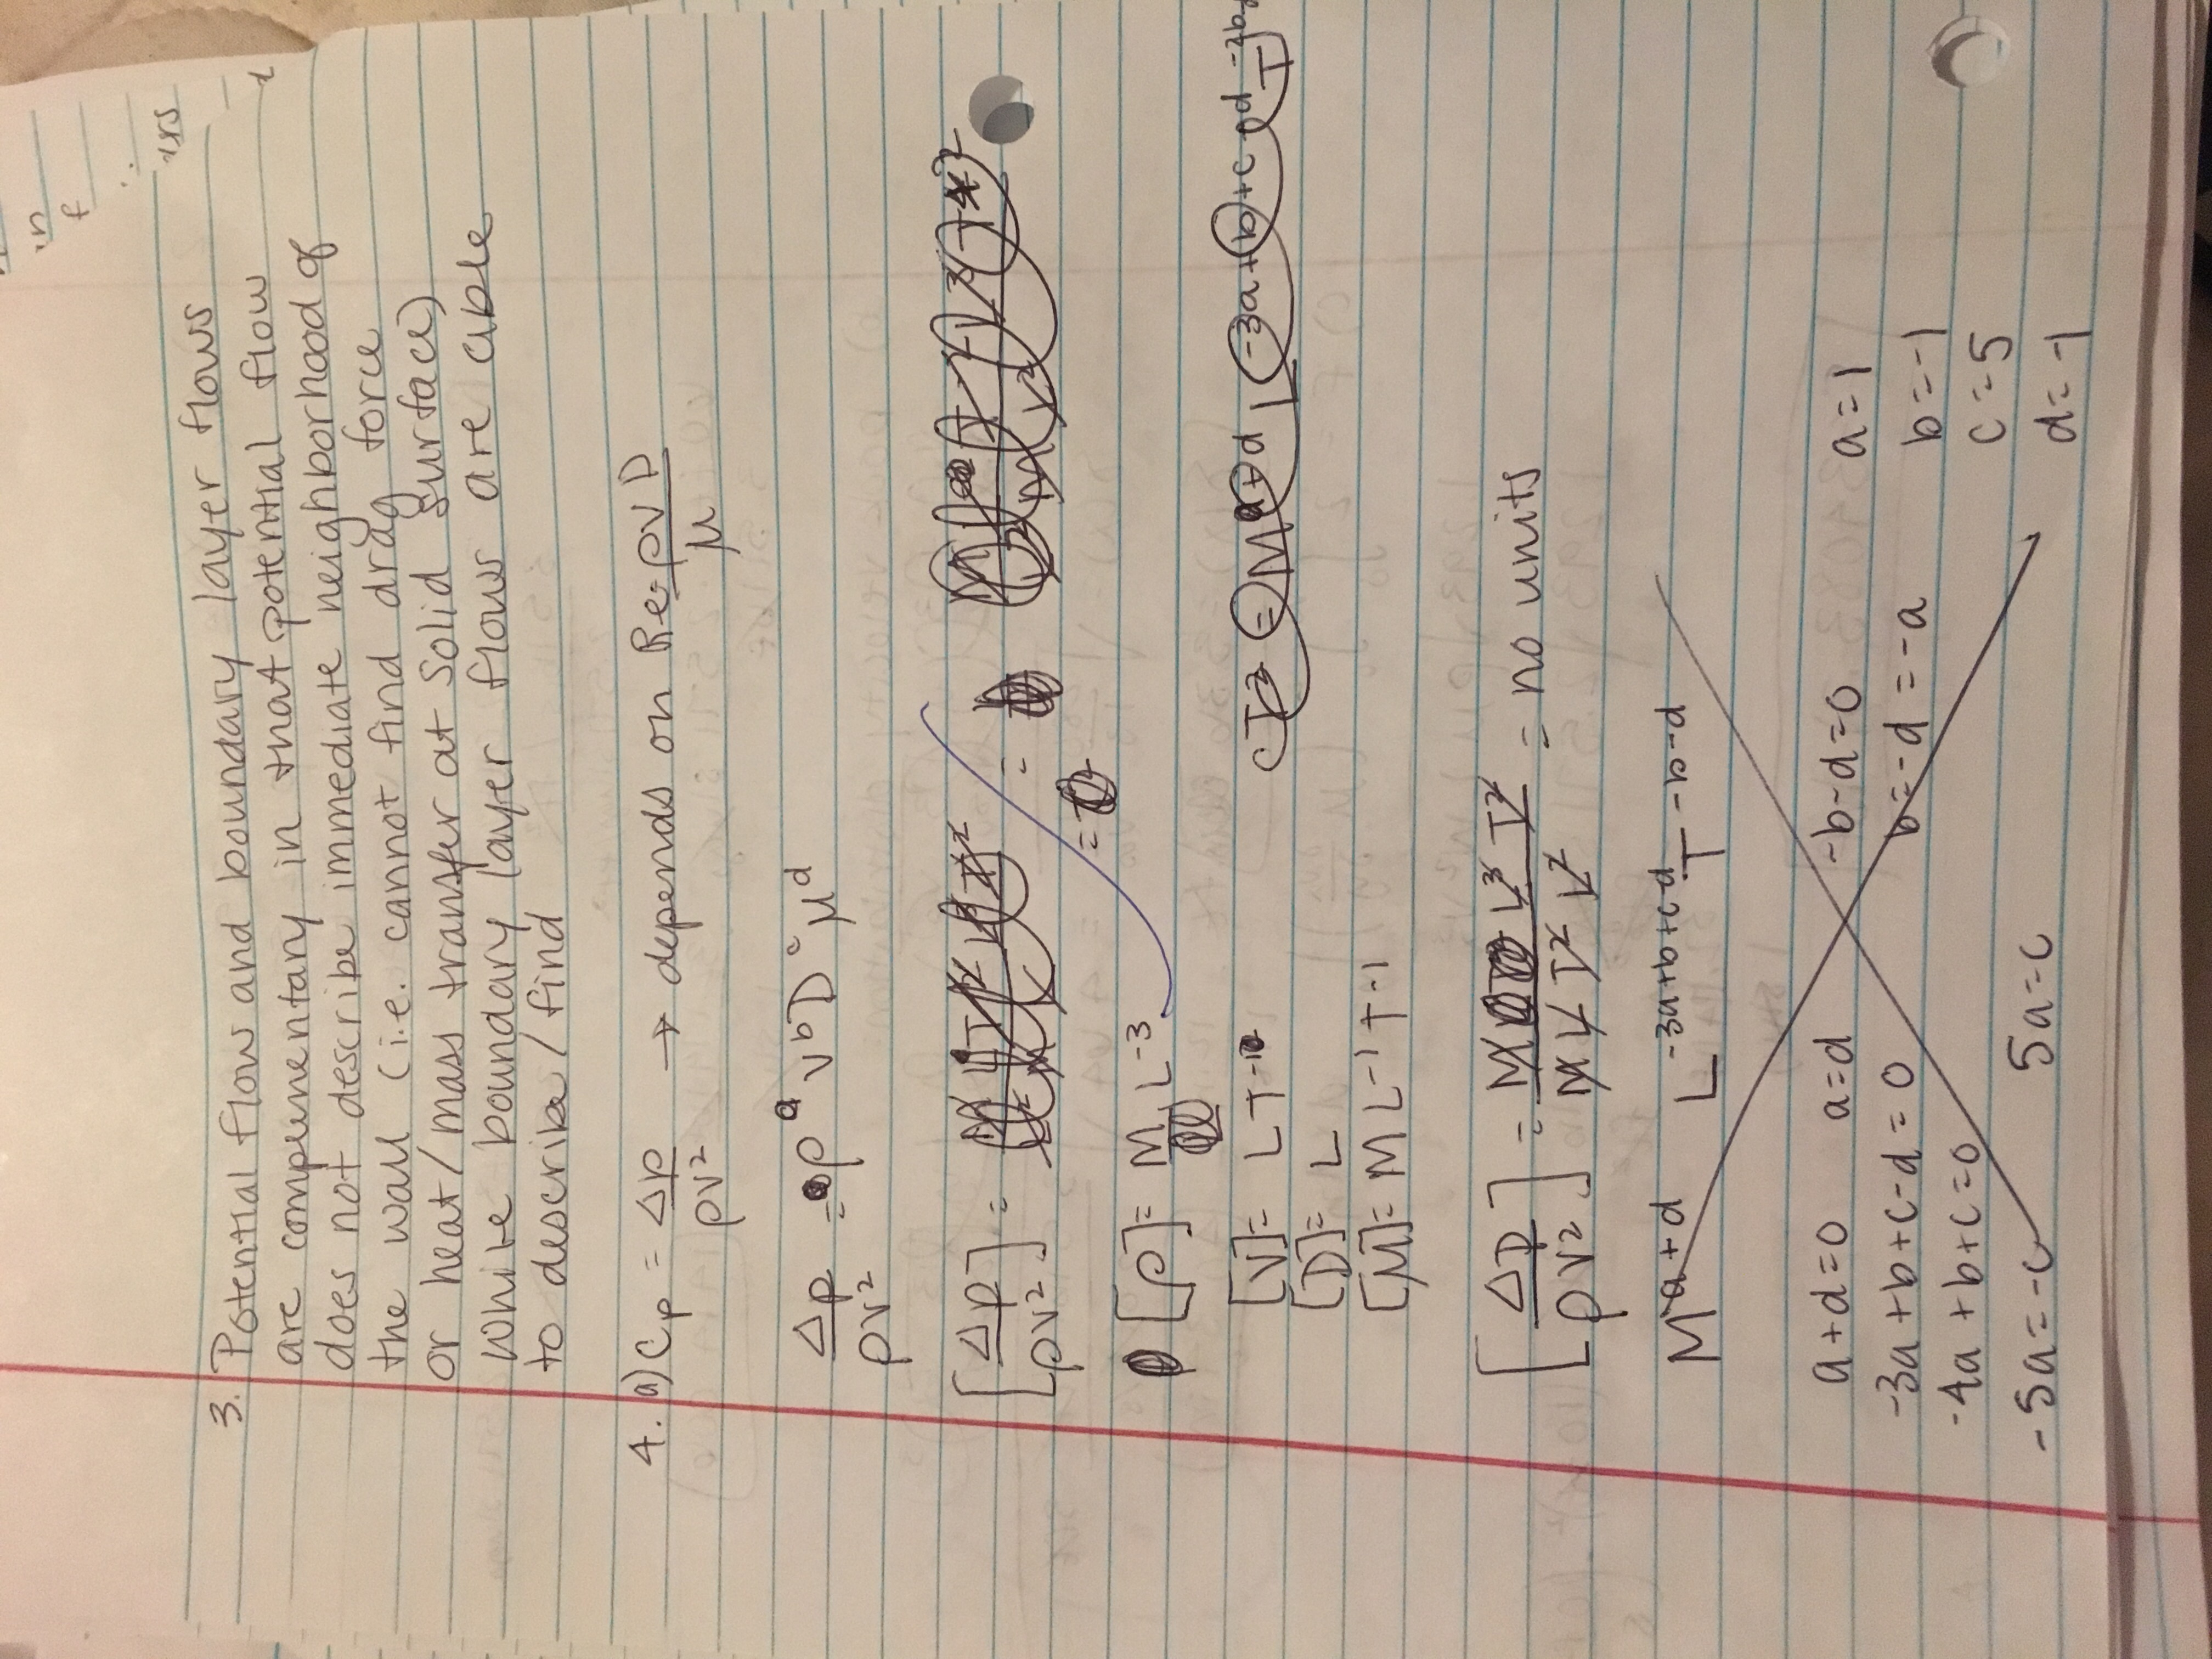 in
f
3. Potential flow and boundary layer flows
are complimentary in that potential flow
does not describe immediate neighborhood of
the wall (i.e. cannot find drag force
or heat/mass transfer at solid surface)
while boundary layer flows are able
to describe/find
4. a) Cp = Δp/ρv² → depends on Re = ρvD/μ
Δp/ρv² = ρ^a v^b D^c μ^d
[Δp/ρv²] = =
=
[ρ] = M L⁻³
[V] = L T⁻¹
[D] = L
[μ] = M L⁻¹ T⁻¹
[Δp/ρv²] = M L³ T² / M L T² L² = no units
M^(a+d) L^(-3a+b+c-d) T^(-b-d)
a+d=0 a=d -b-d=0 a=1
-3a+b+c-d=0 b=-d=-a b=-1
-4a+b+c=0 c=5
-5a=-c 5a=c d=-1